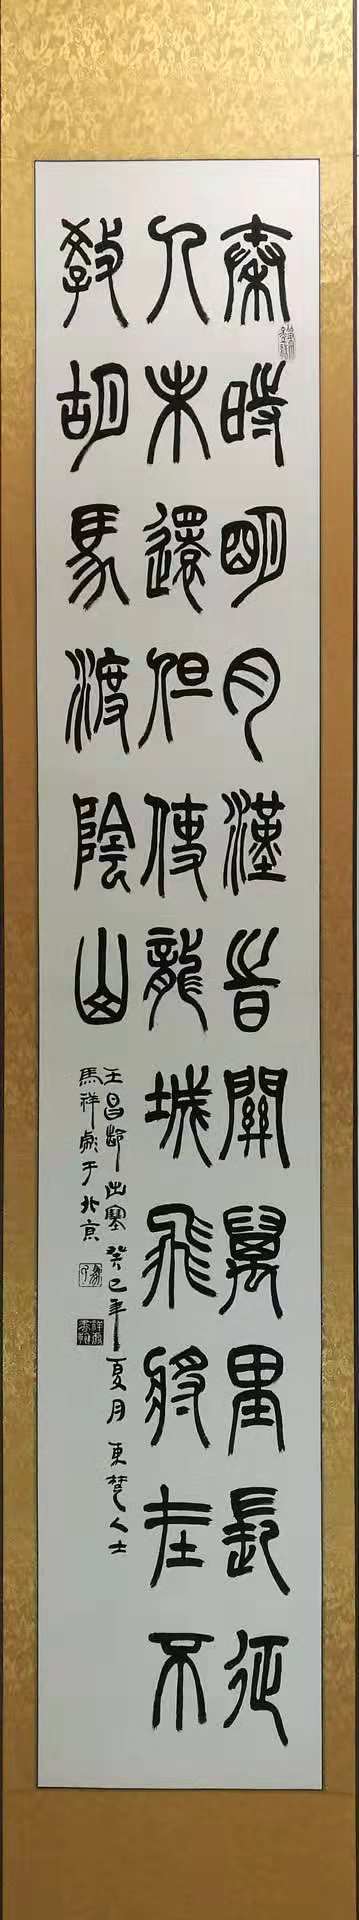 秦時明月漢旹關萬里長征
人未還但使龍城飛將在不
教胡馬渡陰山
王昌齡出塞癸巳年夏月東楚人士
馬祥于北京